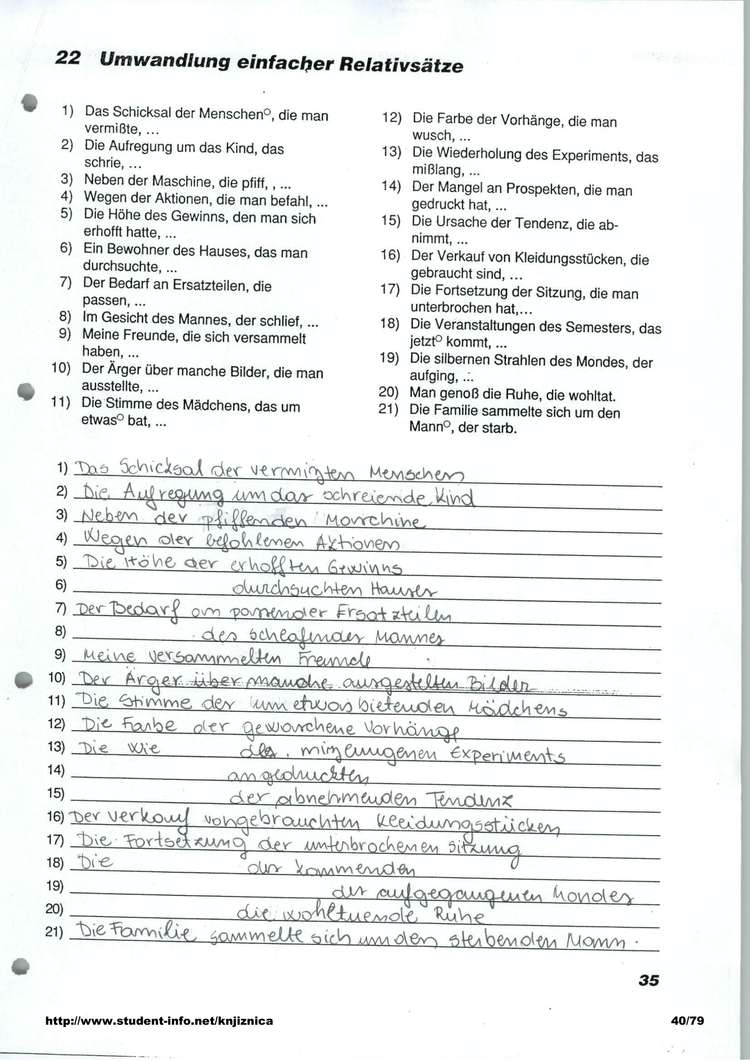 22 Umwandlung einfacher Relativsätze
1) Das Schicksal der Menschen°, die man
vermißte, ...
2) Die Aufregung um das Kind, das
schrie, ...
3) Neben der Maschine, die pfiff, , ...
4) Wegen der Aktionen, die man befahl, ...
5) Die Höhe des Gewinns, den man sich
erhofft hatte, ...
6) Ein Bewohner des Hauses, das man
durchsuchte, ...
7) Der Bedarf an Ersatzteilen, die
passen, ...
8) Im Gesicht des Mannes, der schlief, ...
9) Meine Freunde, die sich versammelt
haben, ...
10) Der Ärger über manche Bilder, die man
ausstellte, ...
11) Die Stimme des Mädchens, das um
etwas° bat, ...
12) Die Farbe der Vorhänge, die man
wusch, ...
13) Die Wiederholung des Experiments, das
mißlang, ...
14) Der Mangel an Prospekten, die man
gedruckt hat, ...
15) Die Ursache der Tendenz, die ab-
nimmt, ...
16) Der Verkauf von Kleidungsstücken, die
gebraucht sind, ...
17) Die Fortsetzung der Sitzung, die man
unterbrochen hat,...
18) Die Veranstaltungen des Semesters, das
jetzt° kommt, ...
19) Die silbernen Strahlen des Mondes, der
aufging, ...
20) Man genoß die Ruhe, die wohltat.
21) Die Familie sammelte sich um den
Mann°, der starb.
1) Das Schicksal der vermißten Menschen
2) Die Aufregung um das schreiende Kind
3) Neben der pfiffenden Maschine
4) Wegen der befohlenen Aktionen
5) Die Höhe der erhofften Gewinns
6) durchsuchten Hauses
7) Der Bedarf an passender Ersatzteilen
8) des schlafender Mannes
9) Meine versammelten Freunde
10) Der Ärger über manche ausgestelten Bilder
11) Die Stimme des um etwas bietenden Mädchens
12) Die Farbe der gewaschene Vorhänge
13) Die Wie des mißlungenen Experiments
14) an gedruckten
15) der abnehmenden Tendenz
16) Der Verkauf von gebrauchten Kleidungsstücken
17) Die Fortsetzung der unterbrochenen Sitzung
18) Die des kommenden
19) des aufgegangenen Mondes
20) die wohltuende Ruhe
21) Die Familie sammelte sich um den sterbenden Mann.
35
http://www.student-info.net/knjiznica 40/79